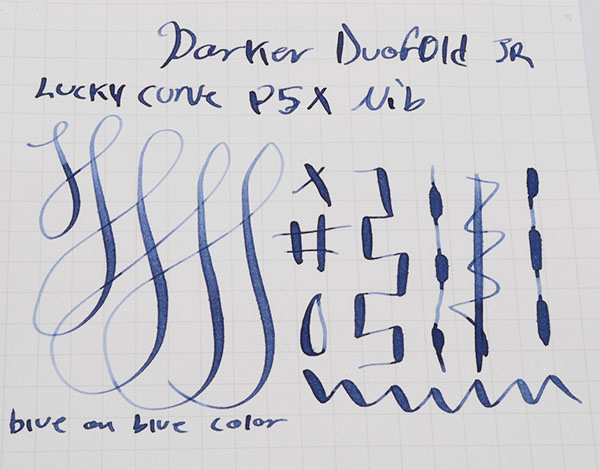 Parker Duofold JR
Lucky Curve P5X Nib
blue on blue color